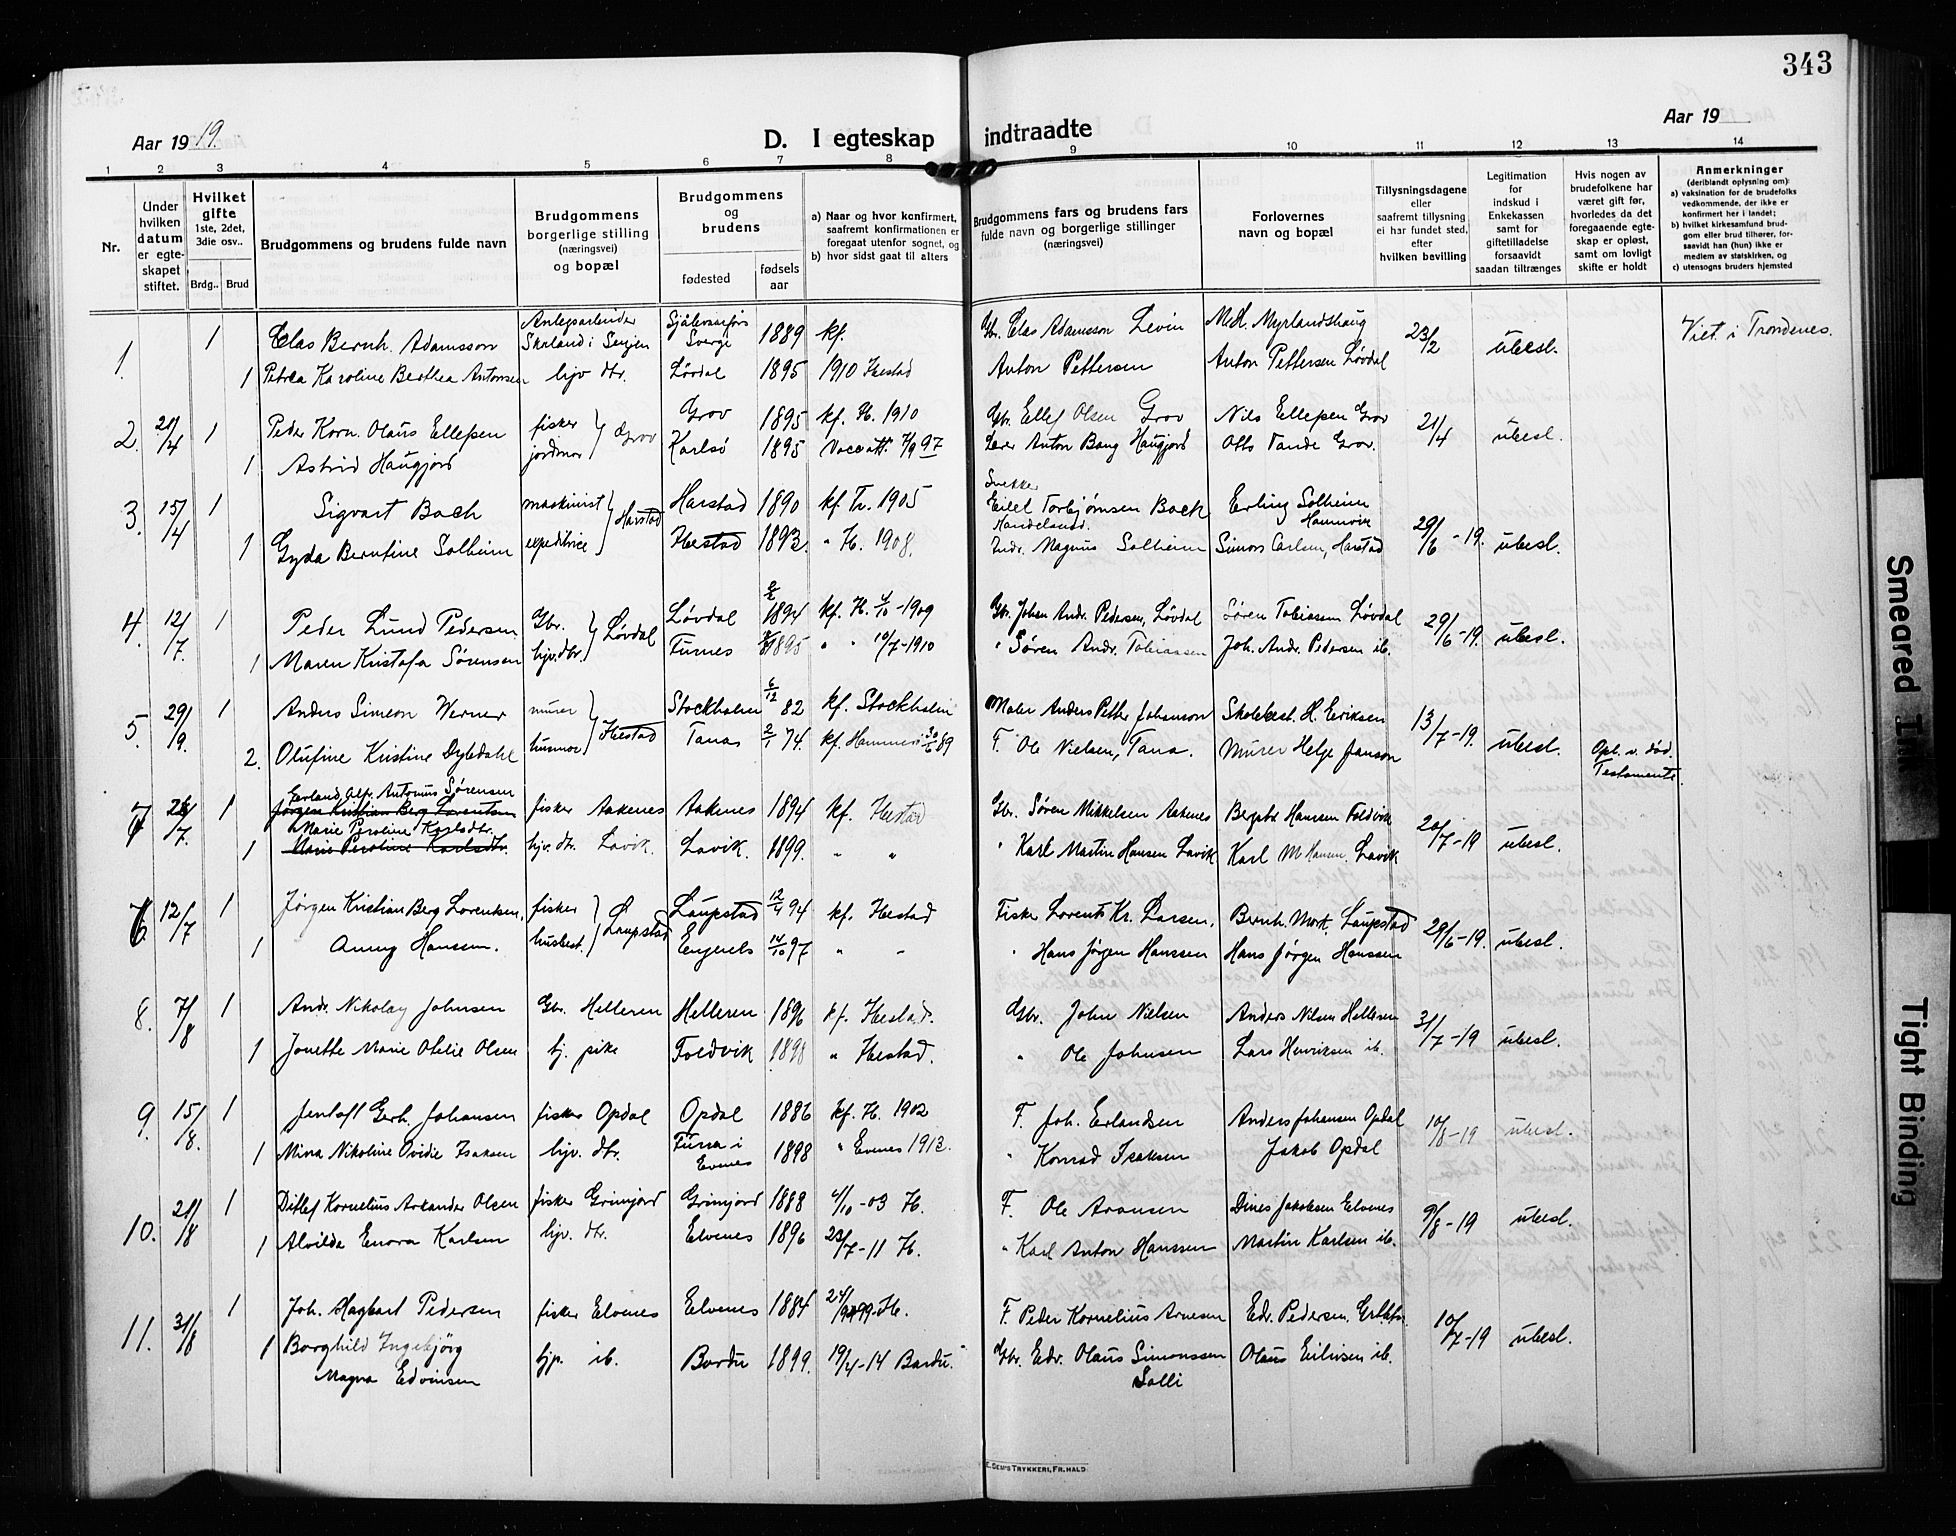 343
Aar 1919.
D. I egteskap indtraadte
Aar 19
1 2 3 4 5 6 7 8 9 10 11 12 13 14
Nr.
Under hvilken datum er egteskapet stiftet.
Hvilket gifte 1ste, 2det, 3die osv..
Brdg.. Brud
Brudgommens og brudens fulde navn
Brudgommens borgerlige stilling (næringsvei) og bopæl
Brudgommens og brudens
fødested
fødsels aar
a) Naar og hvor konfirmert, saafremt konfirmationen er foregaat utenfor sognet, og
b) hvor sidst gaat til alters
Brudgommens fars og brudens fars fulde navn og borgerlige stillinger (næringsvei)
Forlovernes navn og bopæl
Tillysningsdagene eller saafremt tillysning ei har fundet sted, efter hvilken bevilling
Legitimation for indskud i Enkekassen samt for giftetilladelse forsaavidt saadan tiltrænges
Hvis nogen av brudefolkene har været gift før, hvorledes da det foregaaende egteskap er opløst, samt om lovligt skifte er holdt
Anmerkninger (deriblandt oplysning om):
a) vaksination for de brudefolks vedkommende, der ikke er konfirmert her i landet;
b) hvilket kirkesamfund brudgom eller brud tilhører, forsaavidt han (hun) ikke er medlem av statskirken, og
c) utensogns bruders hjemsted
1. 1 Clas Bernh. Adamsson Anlegsarbeider Sverge 1889 kf. Gbr. Clas Adamsson Levin M. Myrlandshaug 23/2 ubesl. Viet i Trondenes.
1 Petrea Karoline Berthea Antonsen hjv dtr. Løvdal 1895 1910 Ibestad Anton Pettersen Anton Pettersen Løvdal
2. 21/4 1 Peder Korn. Olaus Ellefsen fisker Grov Grov 1895 kf. H. 1910 Gbr. Ellef Olsen Grov Nils Ellefsen Grov 21/4 ubesl.
1 Astrid Haugjord jordmor Karlsø 1895 Vacc att. 7/9 97 Lærer Anton Bang Haugjord Otto Tande Grov.
3. 15/4 1 Sigvart Bach maskinist Harstad Harstad 1890 kf. Tr. 1905 Snekker Eilet Torbjørnsen Bach Erling Solheim Hamnvik 29/6-19. ubesl.
1 Gyda Berntine Solheim expeditrice Ibestad 1893. " H. 1908. Handelsmd. Andr. Magnus Solheim Simon Carlsen, Harstad
4. 12/7. 1 Peder Lund Pedersen Gbr. Løvdal Løvdal 1894 kf. H. 4/10-1909 Gbr. Johan Andr. Pedersen, Løvdal Søren Tobiassen Løvdal 29/6-19. ubesl.
1 Maren Kristofa Sørensen hjv. dtr. Furnes 1895 " " 10/7-1910 " Søren Andr. Tobiassen Joh. Andr. Pedersen ib.
5. 29/9. 1 Anders Simeon Werner murer Ibestad Stockholm 6/12 82 kf. Stockholm Maler Anders Petter Johanson Skolebest. H. Eriksen 13/7-19. ubesl. Opl. v. død. Testamente
2. Olufine Kristine Dyledahl husmor Tana 2/1 74. kf. Hammerf 89 F. Ole Nielsen, Tana. Murer Helge Janson
Erland Alf. Antonius Sørensen
7 26/7. 1 Jørgen Kristian Berg Lorentsen fisker Aakenes Aakenes 1894 kf. Ibestad Gbr. Søren Mikkelsen Aakenes Bergetd Hansen Foldvik 20/7-19 ubesl.
Marie Peroline Karlsdtr.
1 Marie Peroline Karlsdtr. hjv. dtr. Lavik. Lavik. 1899. " " " Karl Martin Hansen Lavik Karl M Hansen Lavik
6. 12/7 1 Jørgen Kristian Berg Lorentsen, fisker Laupstad Laupstad 12/4 94 kf. Ibestad Fisker Lorents Kr. Larsen, Bernh. Mort. Laupstad 29/6-19. ubesl.
1 Anny Hansen. husbest. Engenes 14/10 97 " - " Hans Jørgen Hanssen Hans Jørgen Hanssen
8. 7/8 1 Andr. Nikolay Johnsen Gbr. Helleren Helleren 1896 kf. Ibestad. Gbr. John Nielsen Anders Nilsen Helleren 31/7-19 ubesl.
1 Jonette Marie Otelie Olsen tj. pike Foldvik 1898 " Ibestad. " Ole Johnsen Lars Henriksen ib.
9. 15/8. 1 Jentoft Gerh. Johansen fisker Opdal Opdal 1886 kf. H. 1902 F. Joh. Erlandsen Anders Johansen Opdal 10/8-19 ubesl.
1 Mina Nikoline Ovidie Isaksen hjv. dtr. Evenes 1898 " Evenes 1913. " Konrad Isaksen Jakob Opdal
10. 21/8 1 Ditlef Kornelius Arlander Olsen fisker Grimjord Grimjord 1888 4/10-03 H. F. Ole Aronsen Dines Jakobsen Elvenes 9/8-19 ubesl.
1 Alvilda Enora Karlsen hjv. dtr. Elvenes 1896 23/7-11 H. " Karl Anton Hanssen Martin Karlsen ib.
11. 31/8 1 Joh. Hagbart Pedersen fisker Elvenes Elvenes 1884 24/9 99-H. F. Peder Kornelius Arnesen Edv. Pedersen 10/7-19 ubesl.
1 Borghild Ingebjörg Magna Edvinsen tjp. ib. Bardu 1899. 19/4-14 Bardu. Gbr. Edv. Olaus Simonssen Solli Olaus Eilivsen ib.
E. SEMS TRYKKERI, FR.HALD
Smeared Ink
Tight Binding